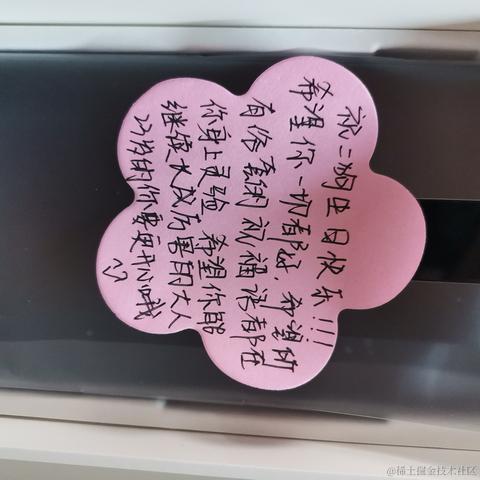 祝二狗生日快乐!!!
希望你一切都好，希望所
有俗套的祝福语都在
你身上灵验 希望你能
继续长成厉害的大人
27岁的你要更开心哦
@稀土掘金技术社区